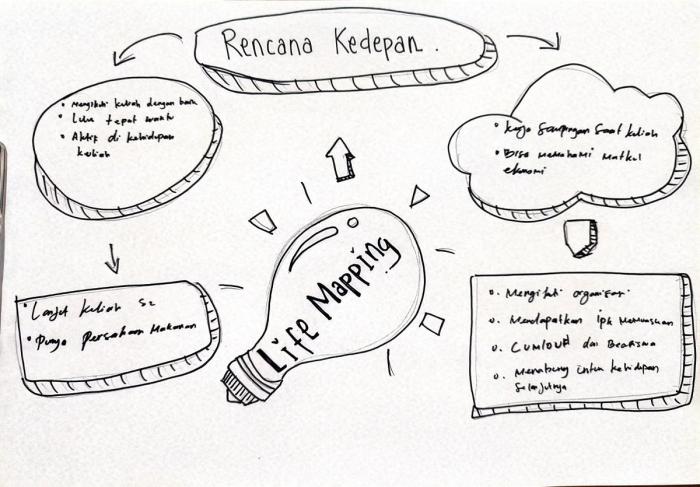 Rencana Kedepan.
• Mengikuti kuliah dengan baik
• Lulus tepat waktu
• Aktif di kehidupan
kuliah
• Kerja Sampingan Saat kuliah
• Bisa memahami matkul
ekonomi
Life Mapping
• Lanjut kuliah S2
• Punya Perusahaan Makanan
o. Mengikuti organisasi
o. Mendapatkan ipk memuaskan
o. CUMLOUD dan Beasiswa
o. Menabung untuk kehidupan
Selanjutnya